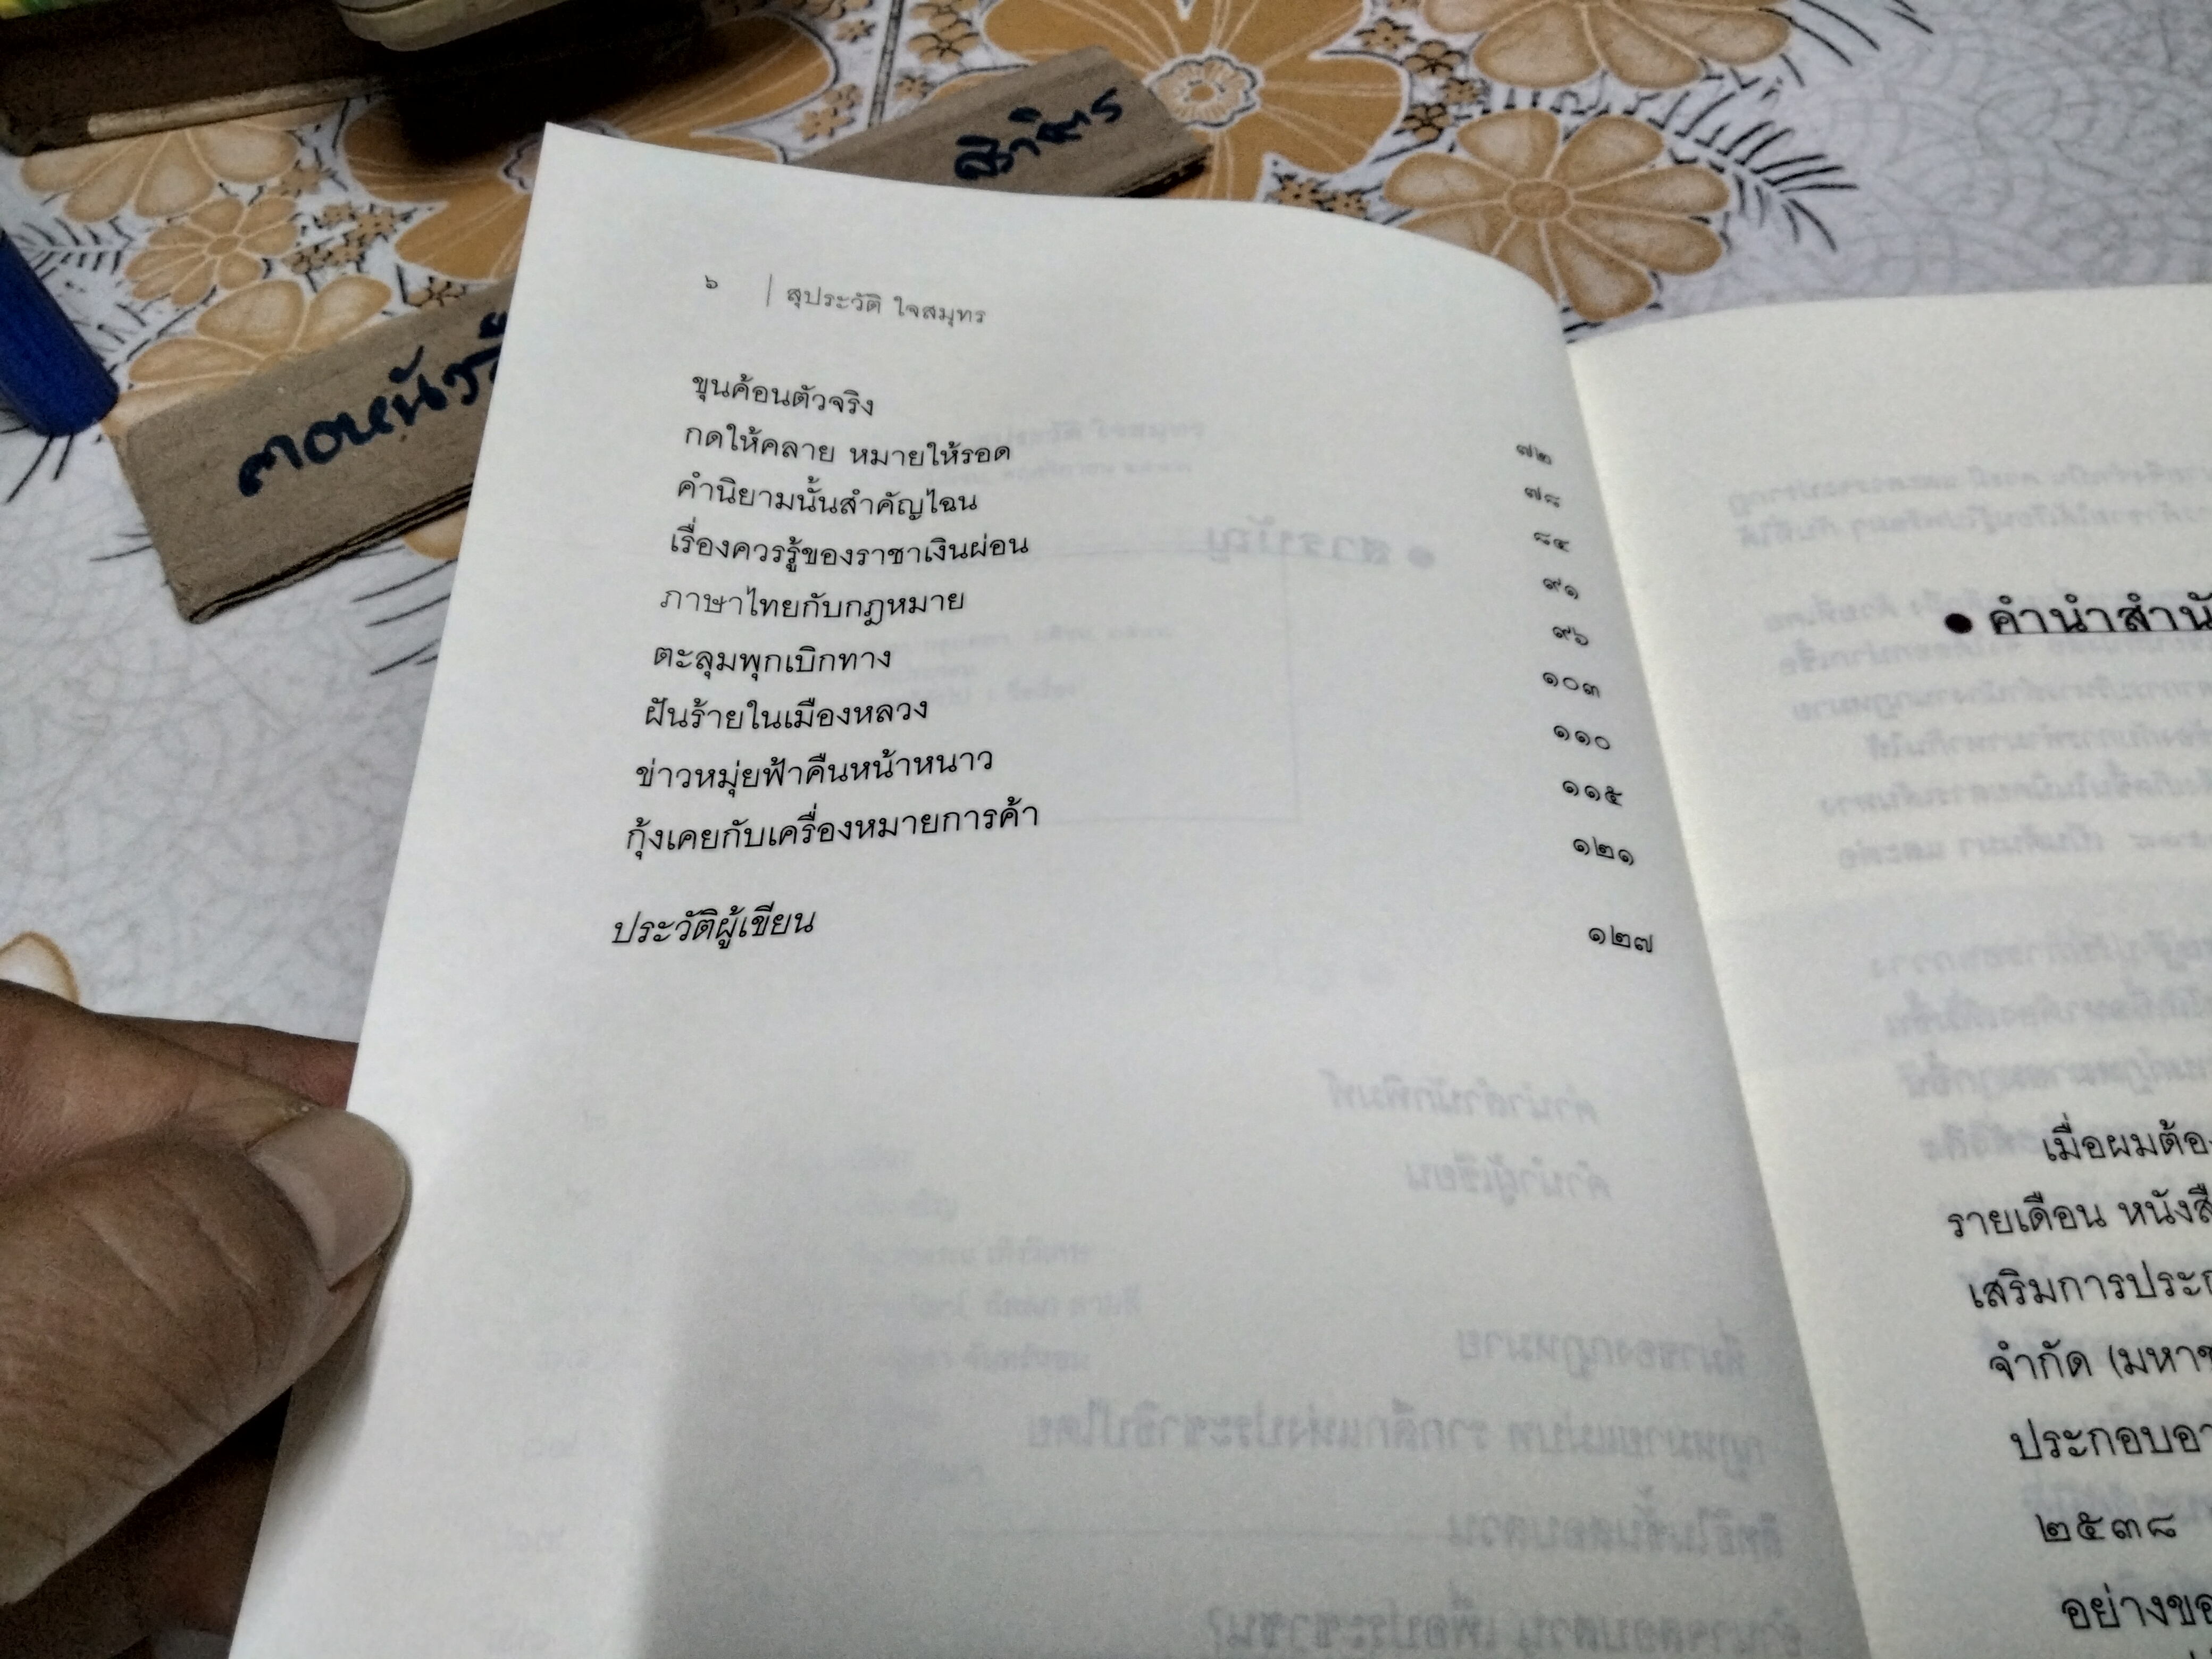 ๖ | สุประวัติ ใจสมุทร
ขุนค้อนตัวจริง ๗๒
กดให้คลาย หมายให้รอด ๗๘
คำนิยามนั้นสำคัญไฉน ๘๔
เรื่องควรรู้ของราชาเงินผ่อน ๙๑
ภาษาไทยกับกฎหมาย ๙๖
ตะลุมพุกเบิกทาง ๑๐๓
ฝันร้ายในเมืองหลวง ๑๑๐
ข่าวหมุ่ยฟ้าคืนหน้าหนาว ๑๑๕
กุ้งเคยกับเครื่องหมายการค้า ๑๒๑
ประวัติผู้เขียน ๑๒๗
● คำนำสำนั
เมื่อผมต้อ
รายเดือน หนังสื
เสริมการประก
จำกัด (มหาช
ประกอบอา
๒๕๓๘
อย่างขอ